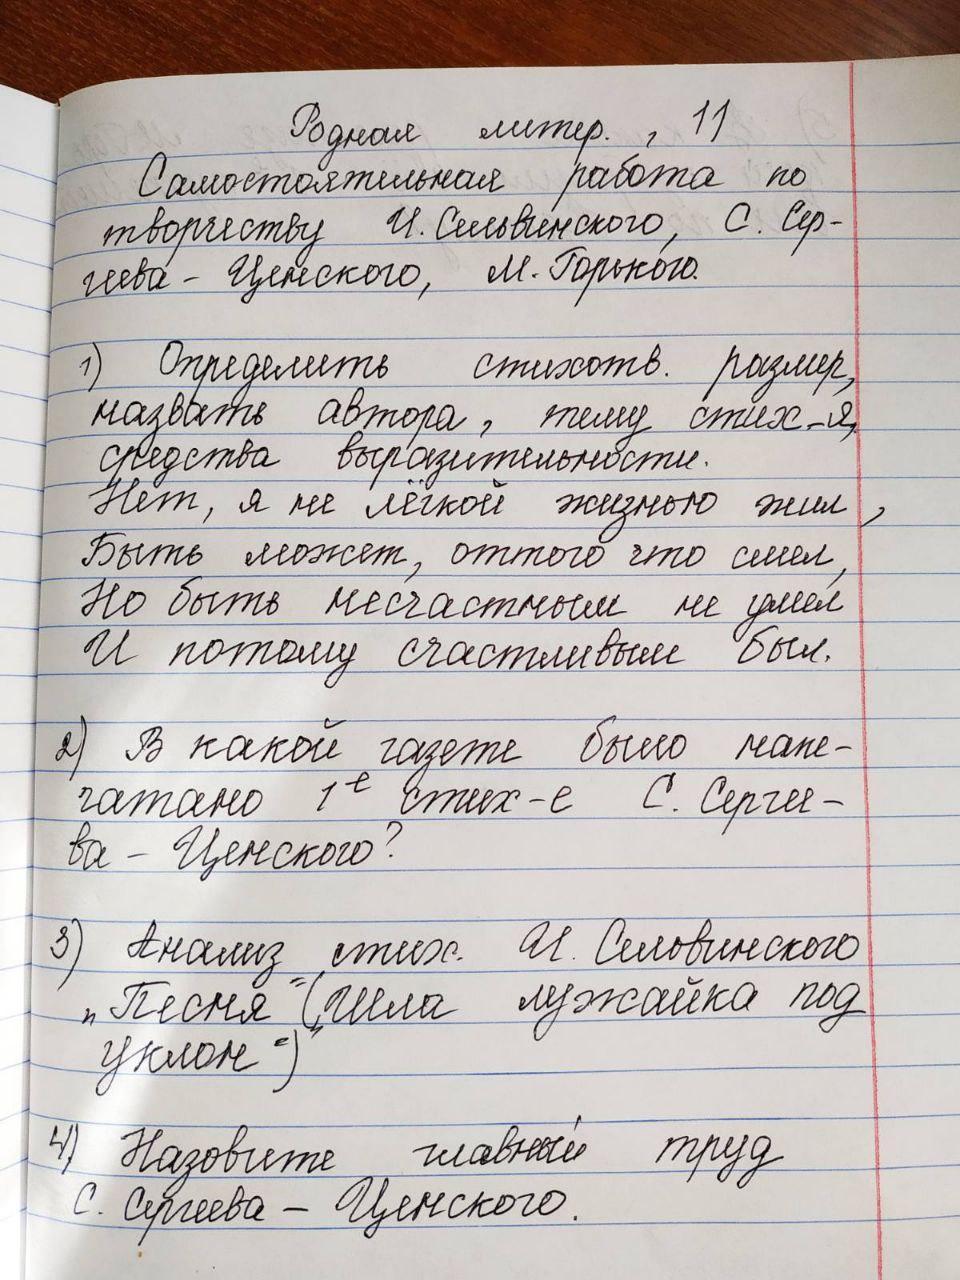 Родная литер., 11
Самостоятельная работа по
творчеству И. Сельвинского, С. Сер-
геева - Ценского, М. Горького.
1) Определить стихотв. размер,
назвать автора, тему стих-я,
средства выразительности.
Нет, я не лёгкой жизнью жил,
Быть может, оттого что смел,
Но быть несчастным не умел
И потому счастливым был.
2) В какой газете было напе-
чатано 1е стих-е С. Сергее-
ва - Ценского?
3) Анализ стих. И. Сельвинского
"Песня" ("Шла лужайка под
уклон")
4) Назовите главный труд
С. Сергеева - Ценского.